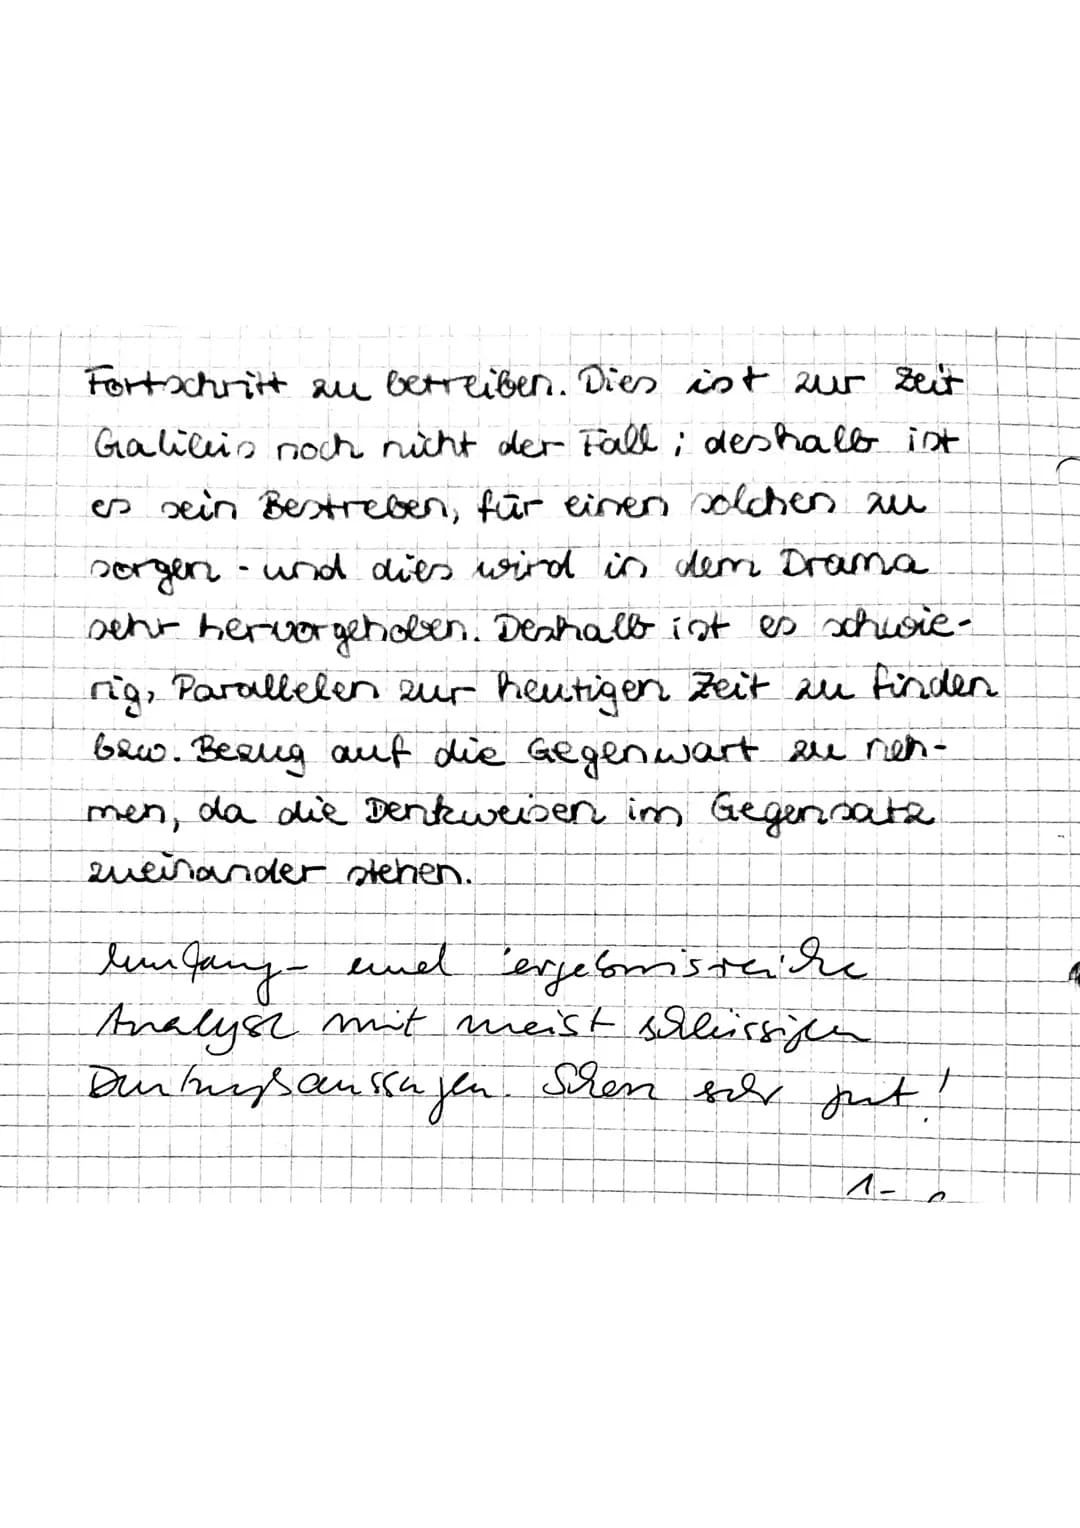 Fortschritt zu betreiben. Dies ist zur Zeit
Galileis noch nicht der Fall; deshalb ist
es sein Bestreben, für einen solchen zu
sorgen - und dies wird in dem Drama
sehr hervorgehoben. Deshalb ist es schwie-
rig, Parallelen zur heutigen Zeit zu finden
bzw. Bezug auf die Gegenwart zu neh-
men, da die Denkweisen im Gegensatz
zueinander stehen.
Umfang- und ergebnisreiche
Analyse mit meist schlüssigen
Deutungsaussagen. Schon sehr gut!
1-